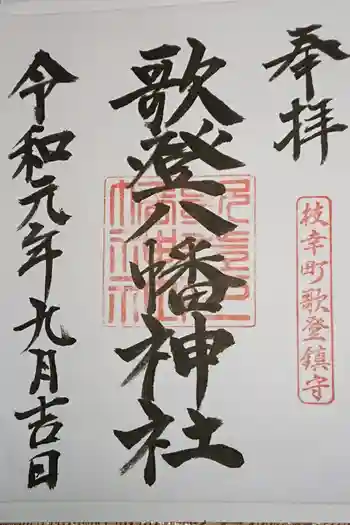 奉拝
枝幸町歌登鎮守
歌登八幡神社
令和元年九月吉日